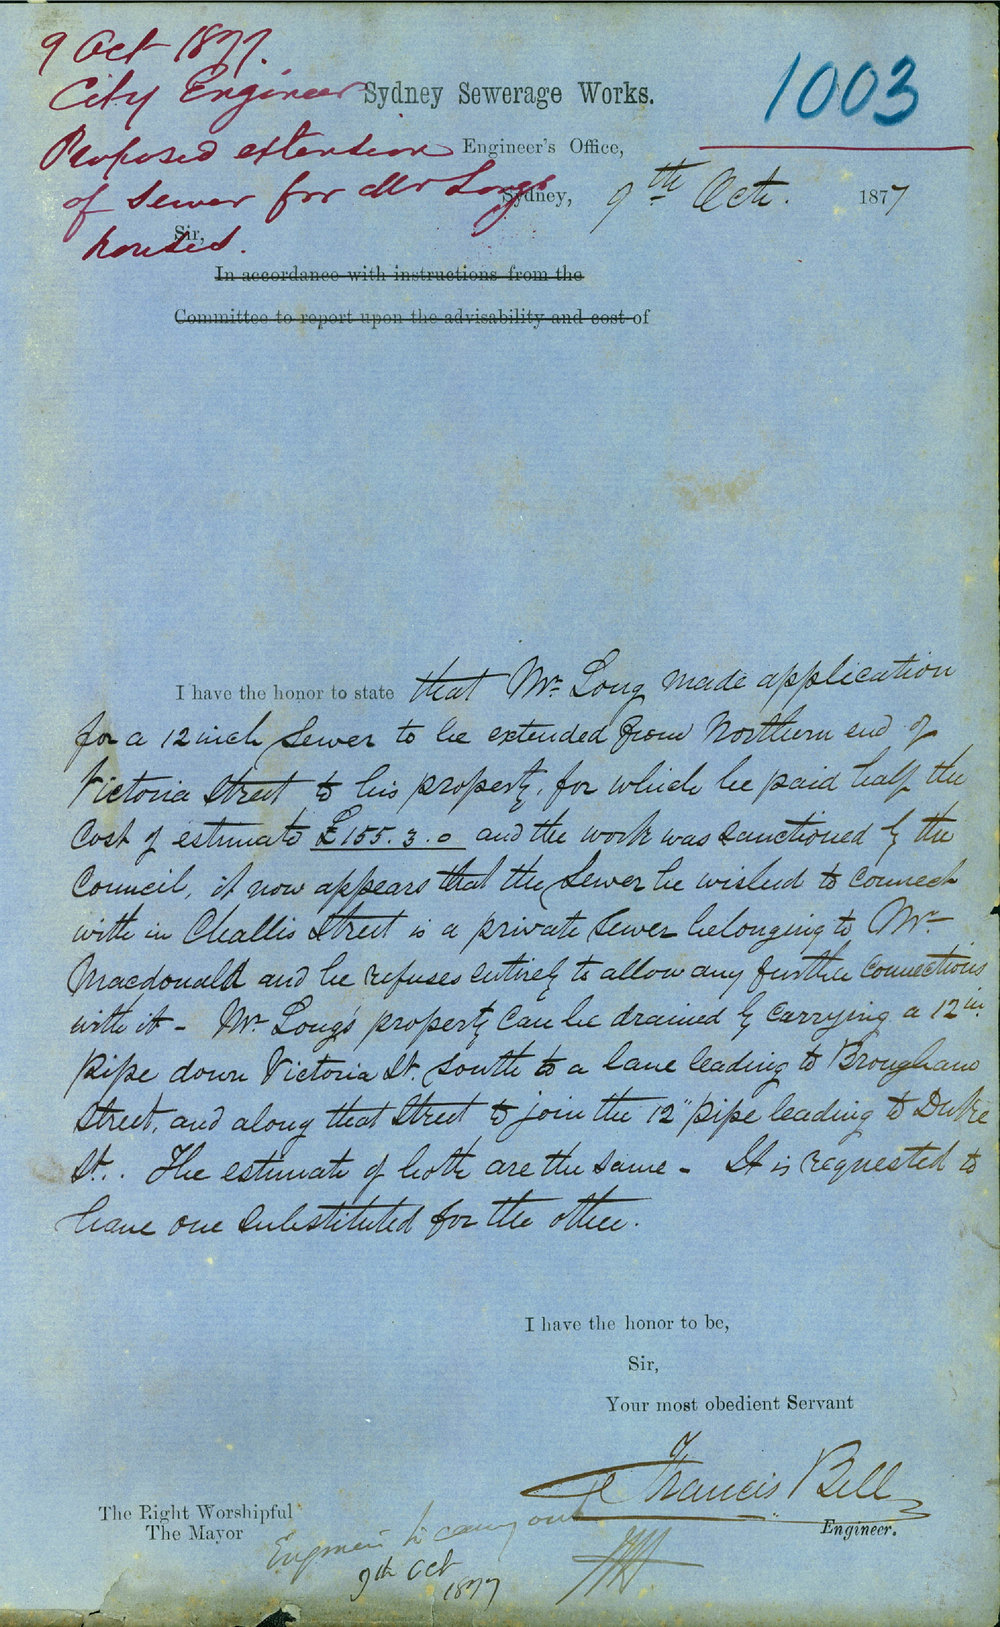 9 Oct 1877.
City Engineer
Proposed extension
of sewer for Mr Long's
houses.
1003
Sydney Sewerage Works.
Engineer's Office,
Sydney, 9th Oct. 1877
Sir,
In accordance with instructions from the
Committee to report upon the advisability and cost of
I have the honor to state that Mr Long made application
for a 12 inch Sewer to be extended from Northern end of
Victoria Street to his property, for which he paid half the
Cost of estimate £155.3.0 and the work was sanctioned by the
Council, it now appears that the Sewer he wished to connect
with in Challis Street is a private Sewer belonging to Mr
Macdonald and he refuses entirely to allow any further connections
with it - Mr Long's property can be drained by carrying a 12 in.
pipe down Victoria St. South to a lane leading to Brougham
Street, and along that Street to join the 12" pipe leading to Duke
St.. The estimate of both are the same - It is requested to
have one substituted for the other.
I have the honor to be,
Sir,
Your most obedient Servant
Francis Bell
Engineer.
The Right Worshipful
The Mayor
Engineer to carry out
9th Oct
1877